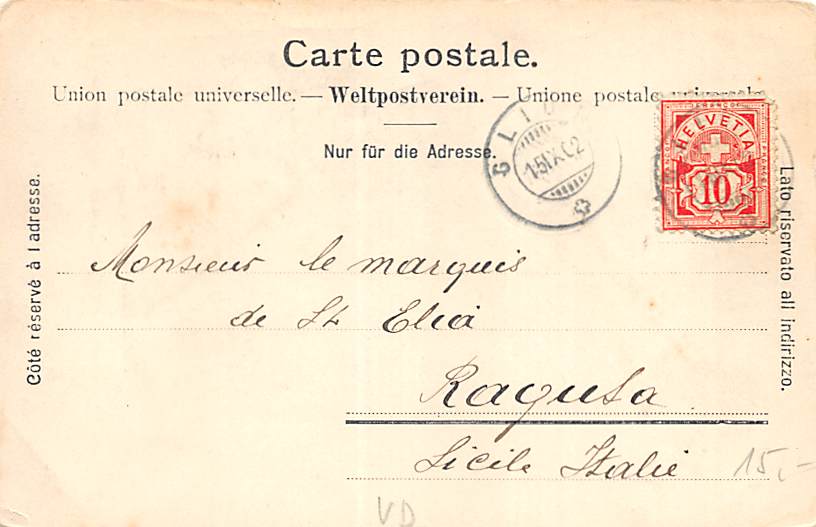 Carte postale.
Union postale universelle. — Weltpostverein. — Unione postale universale
Nur für die Adresse.
Côté réservé à l adresse.
Lato riservato all indirizzo.
FRANCO
HELVETIA
10
GLI
15.IX.02
Monsieur le marquis
de St Elia
Ragusa
Sicile Italie
15,-
VD